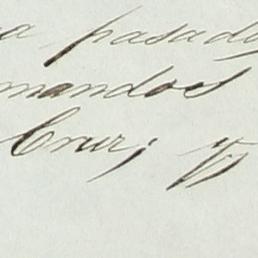 a pasado
mandos
Cruz; y